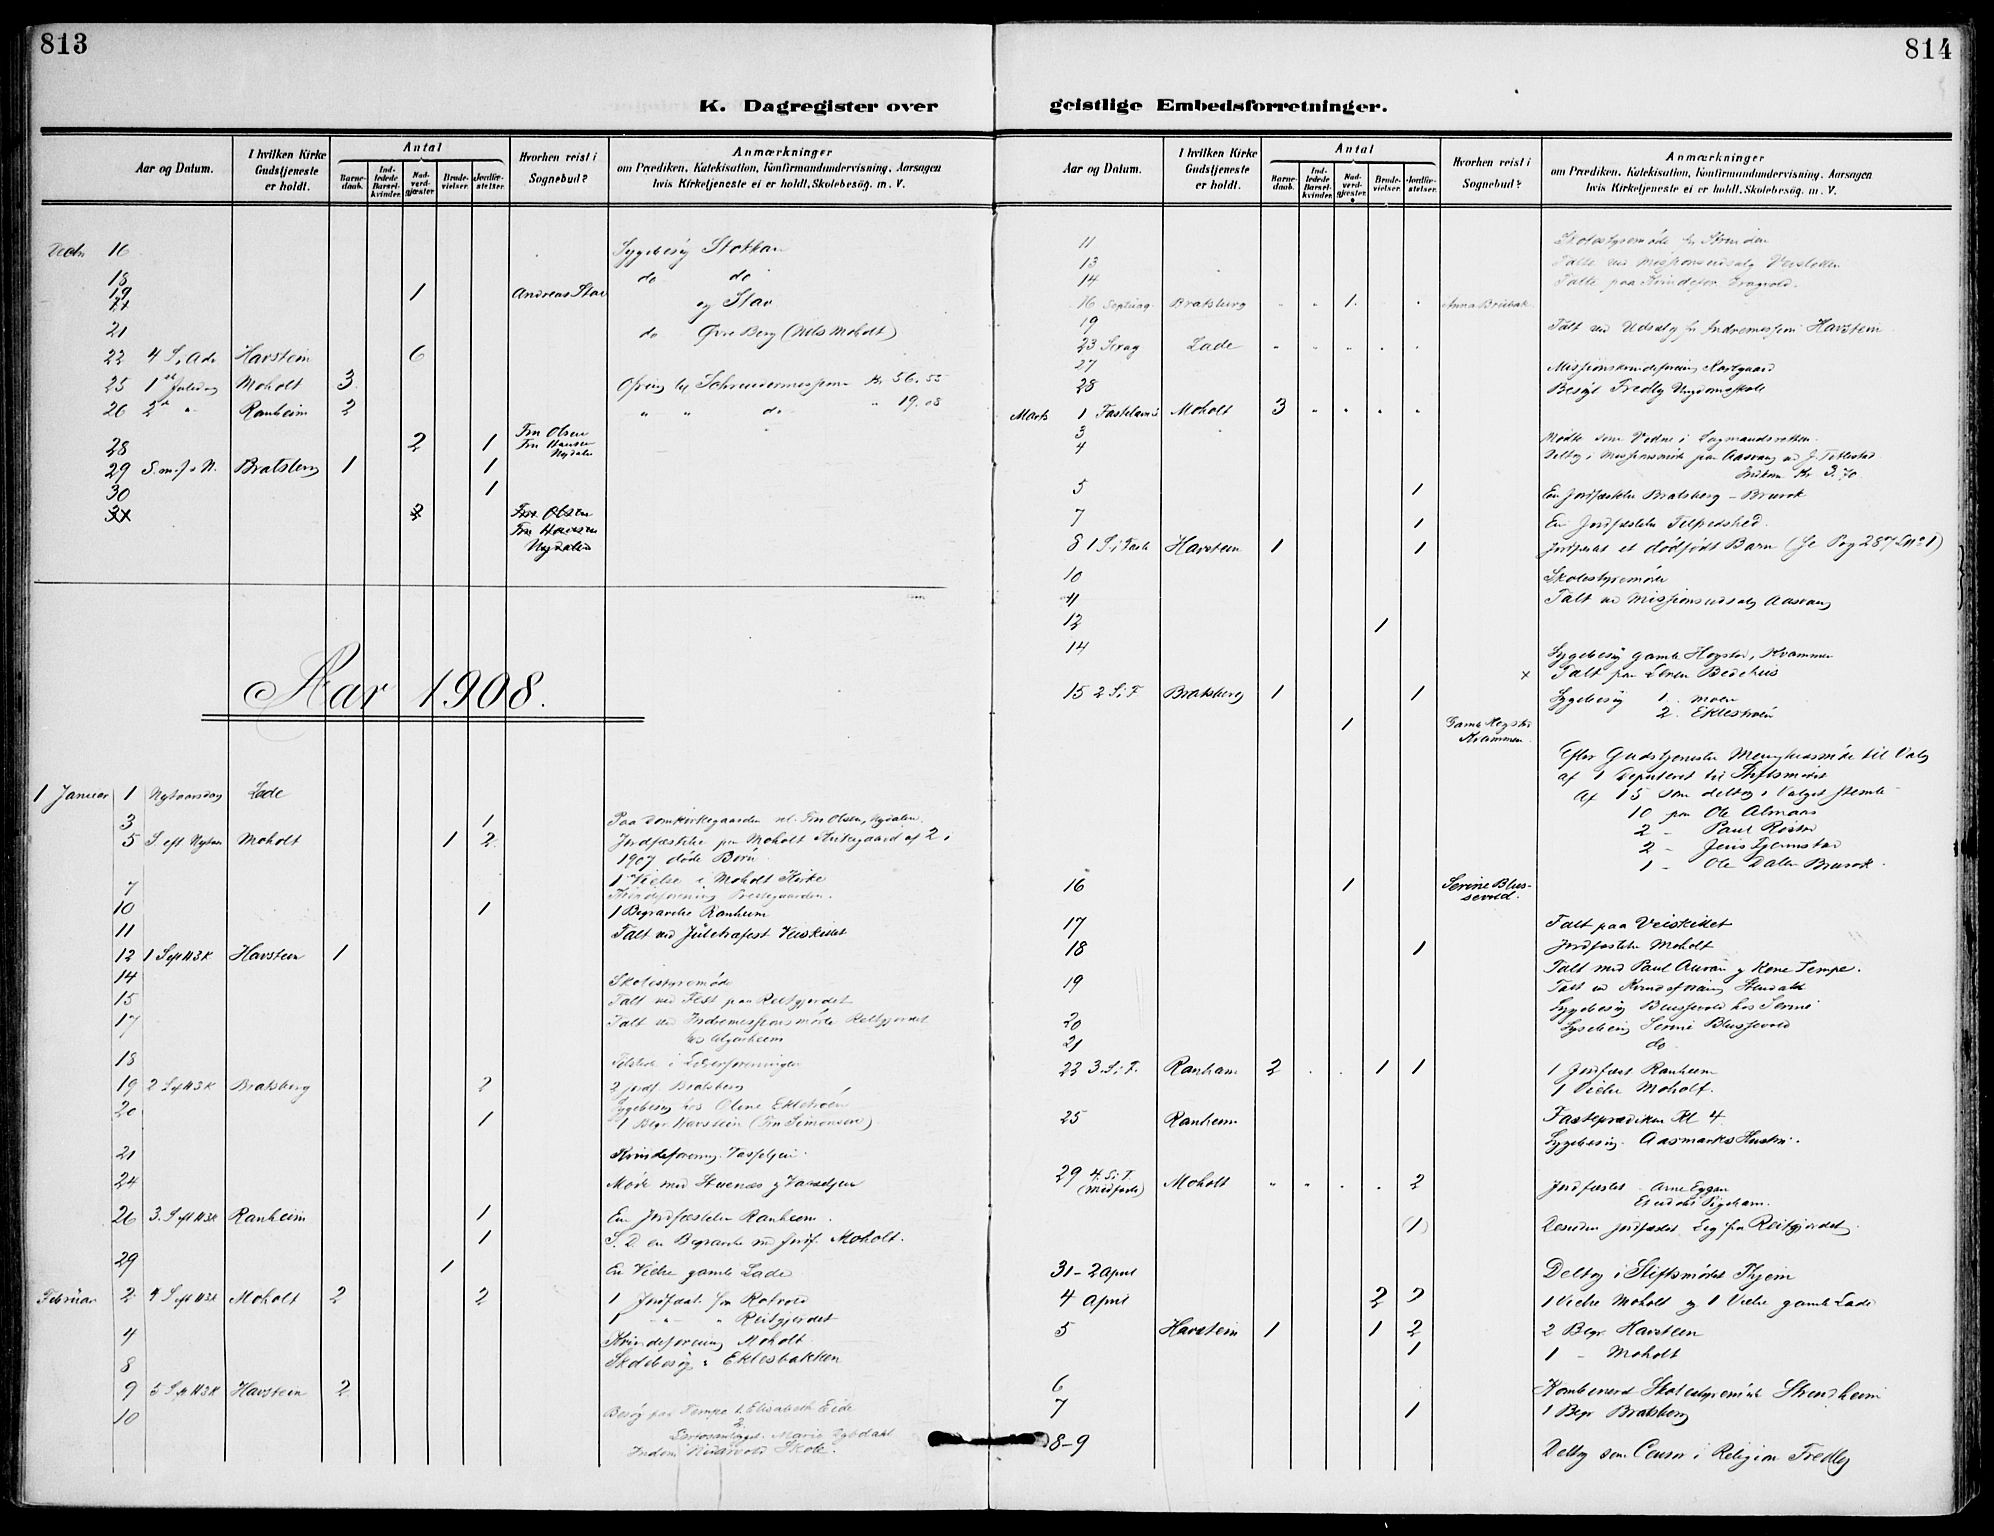 813
K. Dagregister over
Aar og Datum.
I hvilken Kirke Gudstjeneste er holdt.
Antal
Barnedaab.
Indledede Barselkvinder.
Nadverdgjæster.
Brudevielser.
Jordfæstelser.
Hvorhen reist i Sognebud?
Anmærkninger
om Prædiken, Katekisation, Konfirmandundervisning, Aarsagen
hvis Kirketjeneste ei er holdt, Skolebesøg. m. V.
16 Sygebesøg Stokkan
18 do do
19 1 Andreas Stav og Stav
21 do Øvre Berg (Nels Moholt)
22 4 S. Adv Havstein 6
25 1st Juledag Moholt 3 Schreudermissionen Kr. 56.55
26 2d " Ranheim 2 " " do " 19.08
28 2 1 Fru Olsen
Fru Hansen
Nydalen
29 S. m. J. o N. Bratsberg 1 1
30 1
31 2 Fru Olsen
Fru Hansen
Nydalen
Aar 1908.
1 Januar 1 Nytaarsdag Lade
3 1 Paa Domkirkegaarden Fru Olsen, Nydalen
5 S. eft Nytaar Moholt 1 2 Jordfæstelse paa Moholt Kirkegaard af 2 i
1907 døde Børn
1 Vielse i Moholt Kirke
7 Kvindeforening Prestegaarden.
10 1 1 Begravelse Ranheim
11 Talt ved Juletræfest Veiskillet
12 1 S eft H3K Havstein 1
14 Skolestyremøde
15 Talt ved Fest paa Reitgjerdet
17 Talt ved Indremissionsmøde Reitgjerdet
18 Tilstede i Læserforeningen
19 2 S eft H3K Bratsberg 2 2 jordf. Bratsberg
20 Sygebesøg hos Oline Eklestrøen
1 1 Begr. Havstein (Fru Simonsen)
21 Kvindeforening
24 Møde med
26 3. S eft H3K Ranheim 1 En Jordfæstelse Ranheim.
1 S. D. en Begravelse med Jordf. Moholt.
29 1 En Vielse gamle Lade
Februar 2 4 S eft H3K Moholt 2 2 1 Jordfæst. fra Rotvold
1 - " - " Reitgjerdet
4 Kvindeforening Moholt
8 Skolebesøg i Eklesbakken
9 5 S eft H3K Havstein 2
10 Besøg paa Tempe 1. Elisabeth Eide
2. Marie
Skole.
814
geistlige Embedsforretninger.
Aar og Datum.
I hvilken Kirke Gudstjeneste er holdt.
Antal
Barnedaab.
Indledede Barselkvinder.
Nadverdgjæster.
Brudevielser.
Jordfæstelser.
Hvorhen reist i Sognebud?
Anmærkninger
om Prædiken, Katekisation, Konfirmandundervisning, Aarsagen
hvis Kirketjeneste ei er holdt, Skolebesøg. m. V.
11 Skolestyremøde for Strinden
13 Talte ved Missionsudsalg Veiskillet
14 Talte paa Kvindefor.
16 Septuag. Bratsberg " " 1. . . Anna Brubak
19 Talt ved Udsalg for Indremissionen Havstein
23 Sexag Lade " " " " "
27 Missionskvindeforening
28 Besøgt Fredly Ungdomsskole
Marts 1 Fastelavns Moholt 3 " " " "
3 Mødte som Vidne i Lagmandsretten.
4 Deltog i Missionsmøde paa Aasvang ved J. Tetlestad
Indkom Kr 3.70
5 1 En Jordfæstelse Bratsberg - Brurok
7 1 En Jordfæstelse
8 1 S. i Faste Havstein 1 1 Jordfæstet et dødfødt Barn (Se Pag 287 L No 1)
10 Skolestyremøde
11 Talt ved Missionsudsalg Aasvang
12 1
14 Sygebesøg gamle Hegstad, Kvammen
x Talt paa Leren Bedehus
15 2 S. i F Bratsberg 1 1 Sygebesøg 1. Moen
2. Eklestrøen
1 Gamle Hegstad
Kvammen
Efter Gudstjenesten Menighedsmøde til Valg
af 1 Deputeret til Stiftsmødet
Af 15 som deltog i Valget stemte
10 paa Ole Almaas
2 - Paul Røstad
2 - Jens Tjernstad
1 - Ole Dalen Brurok
16 1 Serine Blussevold.
17 Talt paa Veiskillet
18 1 Jordfæstelse Moholt
Talt med Paul Auran og Kone Tempe.
19 Talt ved Kvindeforening
Sygebesøg Blussevold hos Serine
20 Sygebesøg Serine Blussevold
21 do
22 3. S. i F. Ranheim 2 . . 1 1 1 Jordfæst Ranheim
1 Vielse Moholt.
25 Ranheim Fasteprædiken Kl 4
Sygebesøg. Aasmarks Hustru.
29 4. S. i F. (Midfaste) Moholt " " . . 2 Jordfæstet - Arne Eggan
(1) Desuden jordfæstet Lig fra Reitgjerdet.
31 - 2 April Deltog i Stiftsmødet Thjem
4 April 2 2 1 Vielse Moholt og 1 Vielse gamle Lade
5 Havstein 1 1 2 2 Begr. Havstein
1 1 - Moholt
6 Kombineret Skolestyremøde Strindheim
7 1 1 Begr Bratsberg
8-9 Deltog som Censor i Religion Fredly